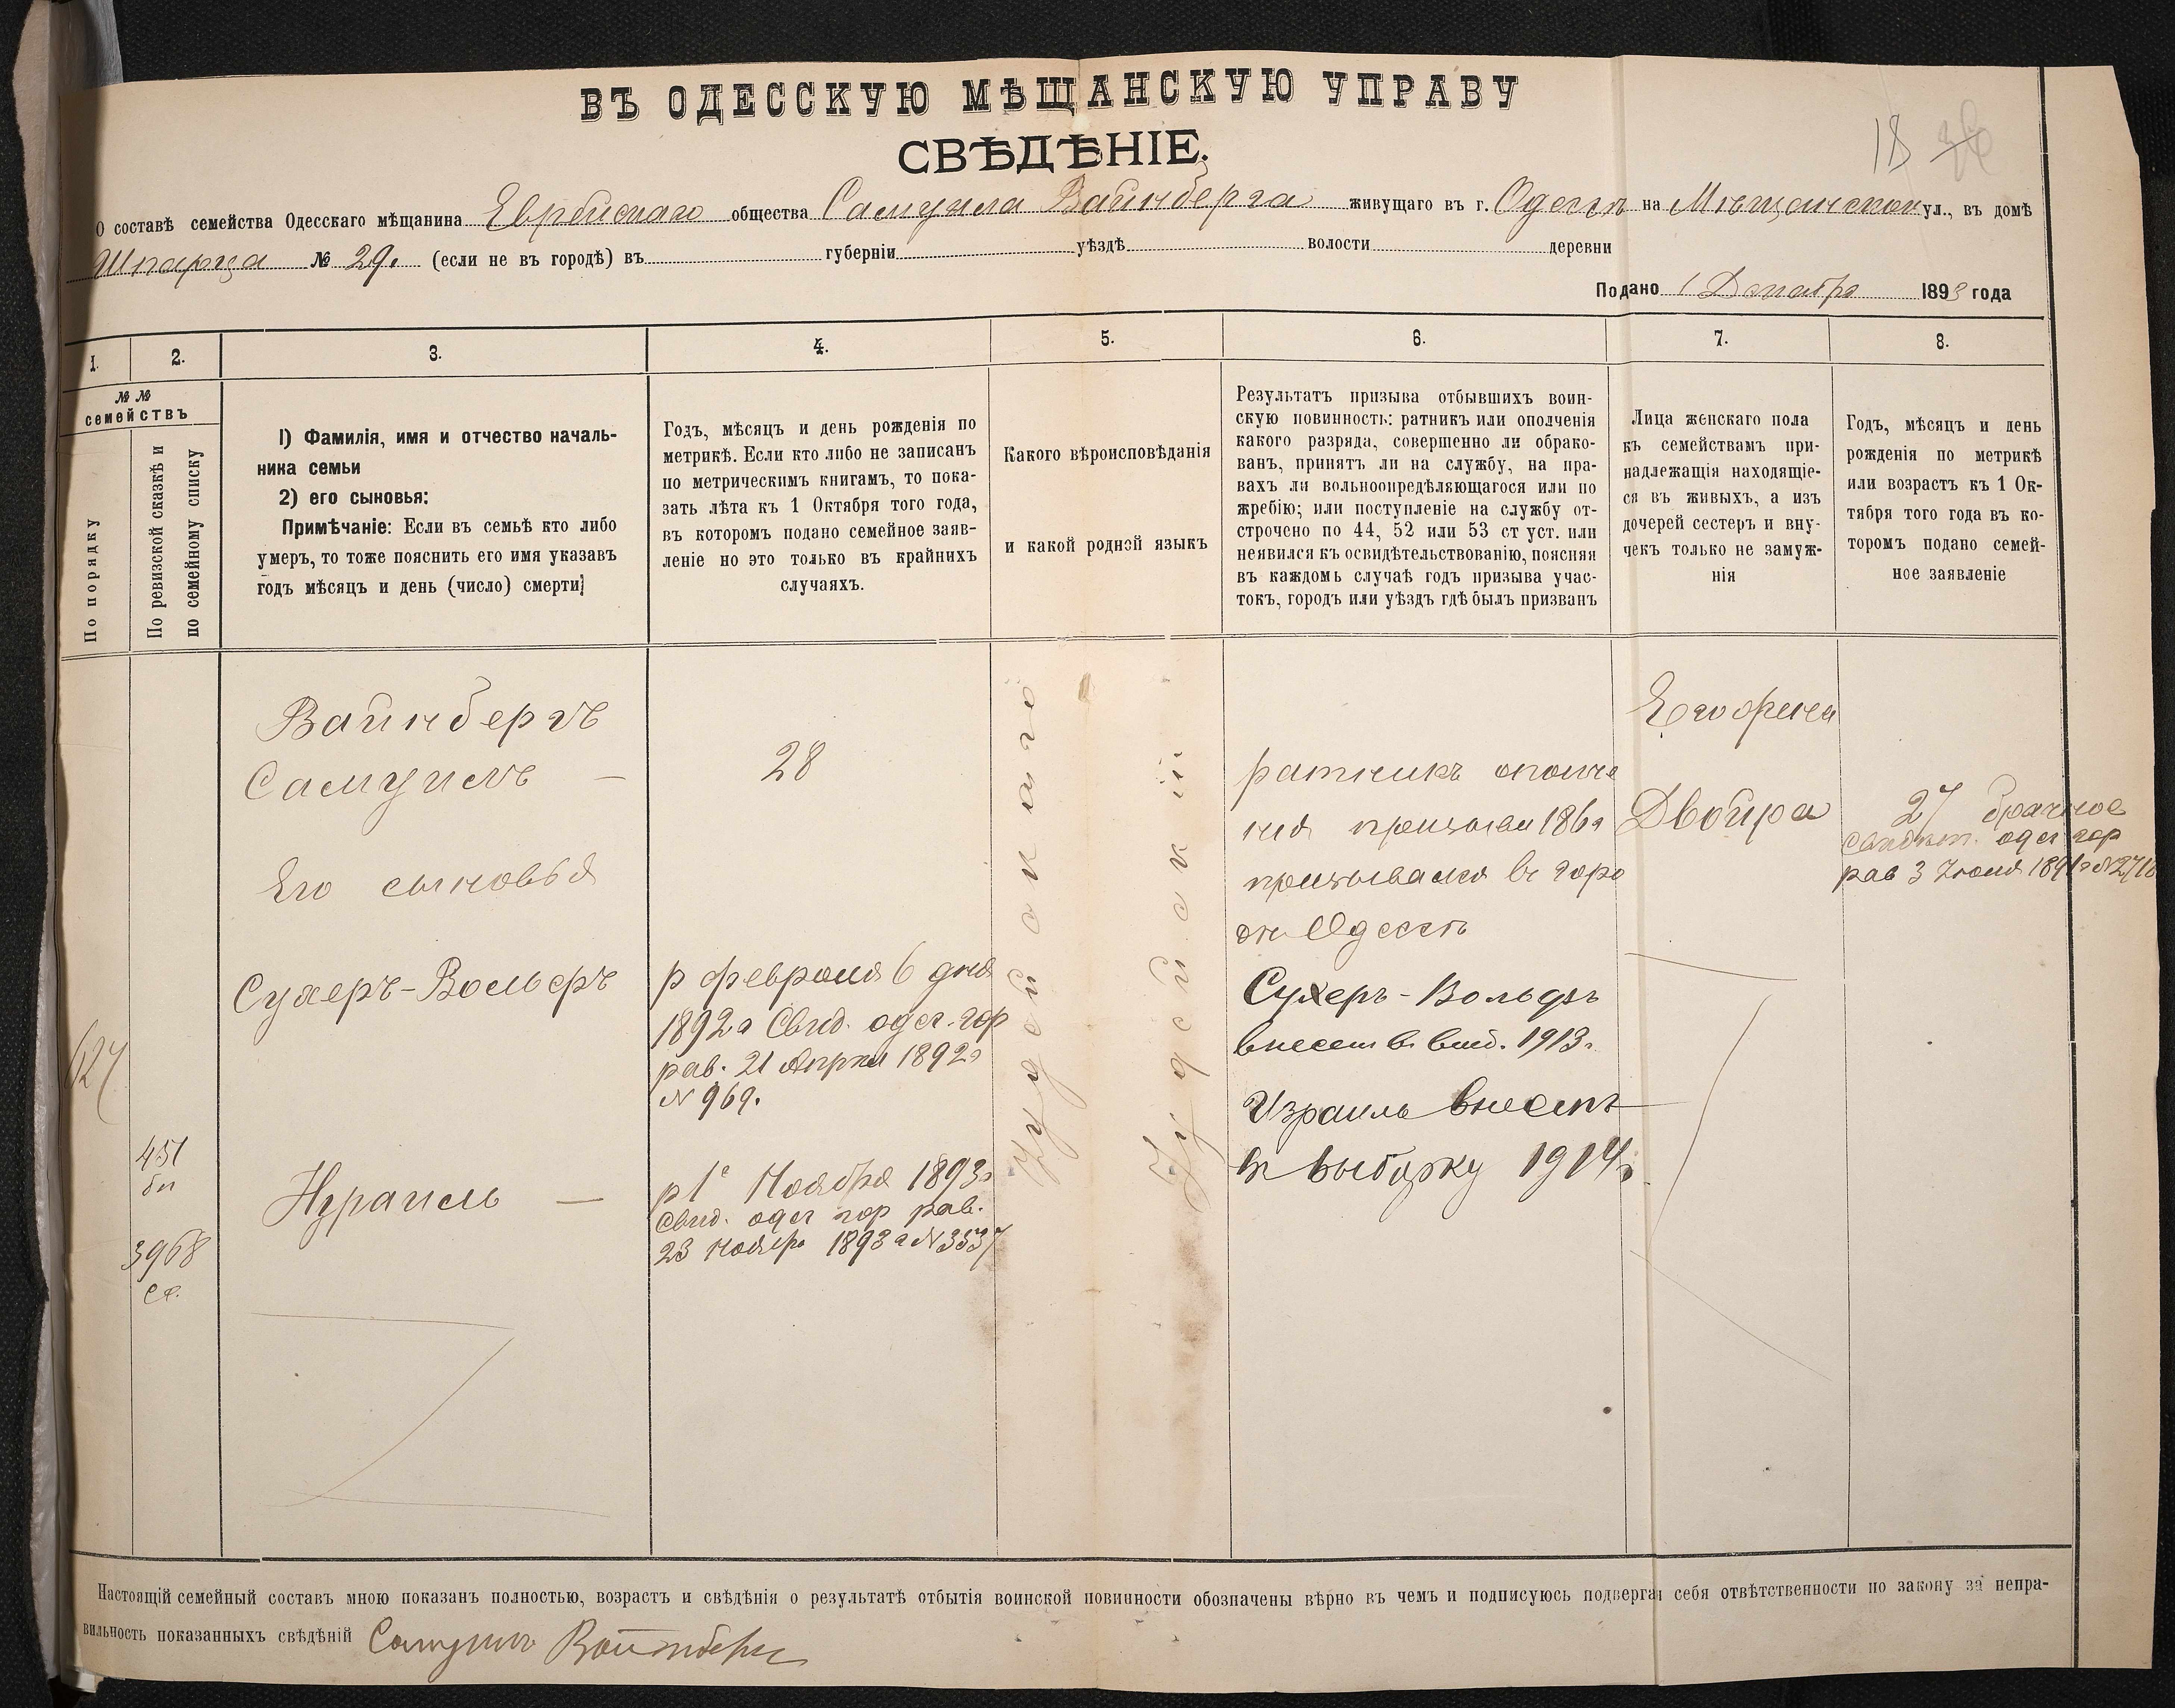 18 36
ВЪ ОДЕССКУЮ МѢЩАНСКУЮ УПРАВУ
СВѢДѢНІЕ.
О составѣ семейства Одесскаго мѣщанина Еврейскаго общества Самуила Вайнберга живущаго въ г. Одессѣ на Мѣщанской ул., въ домѣ
Шпарца № 29. (если не въ городѣ) въ губерніи уѣздѣ волости деревни
Подано 1 Декабря 1893 года
1. 2. 3. 4. 5. 6. 7. 8.
№ №
семействъ
По порядку
По ревизской сказкѣ и
по семейному списку
1) Фамилія, имя и отчество началь-
ника семьи
2) его сыновья:
Примѣчаніе: Если въ семьѣ кто либо
умеръ, то тоже пояснить его имя указавъ
годъ мѣсяцъ и день (число) смерти]
Годъ, мѣсяцъ и день рожденія по
метрикѣ. Если кто либо не записанъ
по метрическимъ книгамъ, то пока-
зать лѣта къ 1 Октября того года,
въ которомъ подано семейное заяв-
леніе но это только въ крайнихъ
случаяхъ.
Какого вѣроисповѣданія
и какой родной языкъ
Результатъ призыва отбывшихъ воин-
скую повинность: ратникъ или ополченія
какого разряда, совершенно ли обрако-
ванъ, принятъ ли на службу, на пра-
вахъ ли вольноопредѣляющагося или по
жребію; или поступленіе на службу от-
строчено по 44, 52 или 53 ст уст. или
неявился къ освидѣтельствованію, поясняя
въ каждомъ случаѣ годъ призыва учас-
токъ, городъ или уѣздъ гдѣ былъ призванъ
Лица женскаго пола
къ семействамъ при-
надлежащія находящіе-
ся въ живыхъ, а изъ
дочерей сестеръ и вну-
чекъ только не замуж-
нія
Годъ, мѣсяцъ и день
рожденія по метрикѣ
или возрастъ къ 1 Ок-
тября того года въ ко-
торомъ подано семей-
ное заявленіе
624
451
бп
3968
се.
Вайнбергъ
Самуилъ —
Его сыновья
Сухеръ-Вольфъ
Израиль —
28
р февраля 6 дня
1892 г Свид. одес. гор
рав. 21 Апрѣля 1892 г
N 969.
р 1го Ноября 1893 г
Свид. одес гор рав.
23 Ноября 1893 г N 3537
Іудейскаго
Іудейскій
ратникъ ополче
нія призыва 186 г
призывался въ горо
дѣ Одессѣ
Сухеръ-Вольфъ
внесенъ в. 1913 г.
Израиль внесенъ
въ выборку 1914 г.
Его жена
Двойра
27 брачное
свидѣт. одес гор
рав 3 Іюня 1891 г N 2716
Настоящій семейный составъ мною показанъ полностью, возрастъ и свѣдѣнія о результатѣ отбытія воинской повинности обозначены вѣрно въ чемъ и подписуюсь подвергая себя отвѣтственности по закону за непра-
вильность показанныхъ свѣдѣній Самуилъ Вайнбергъ